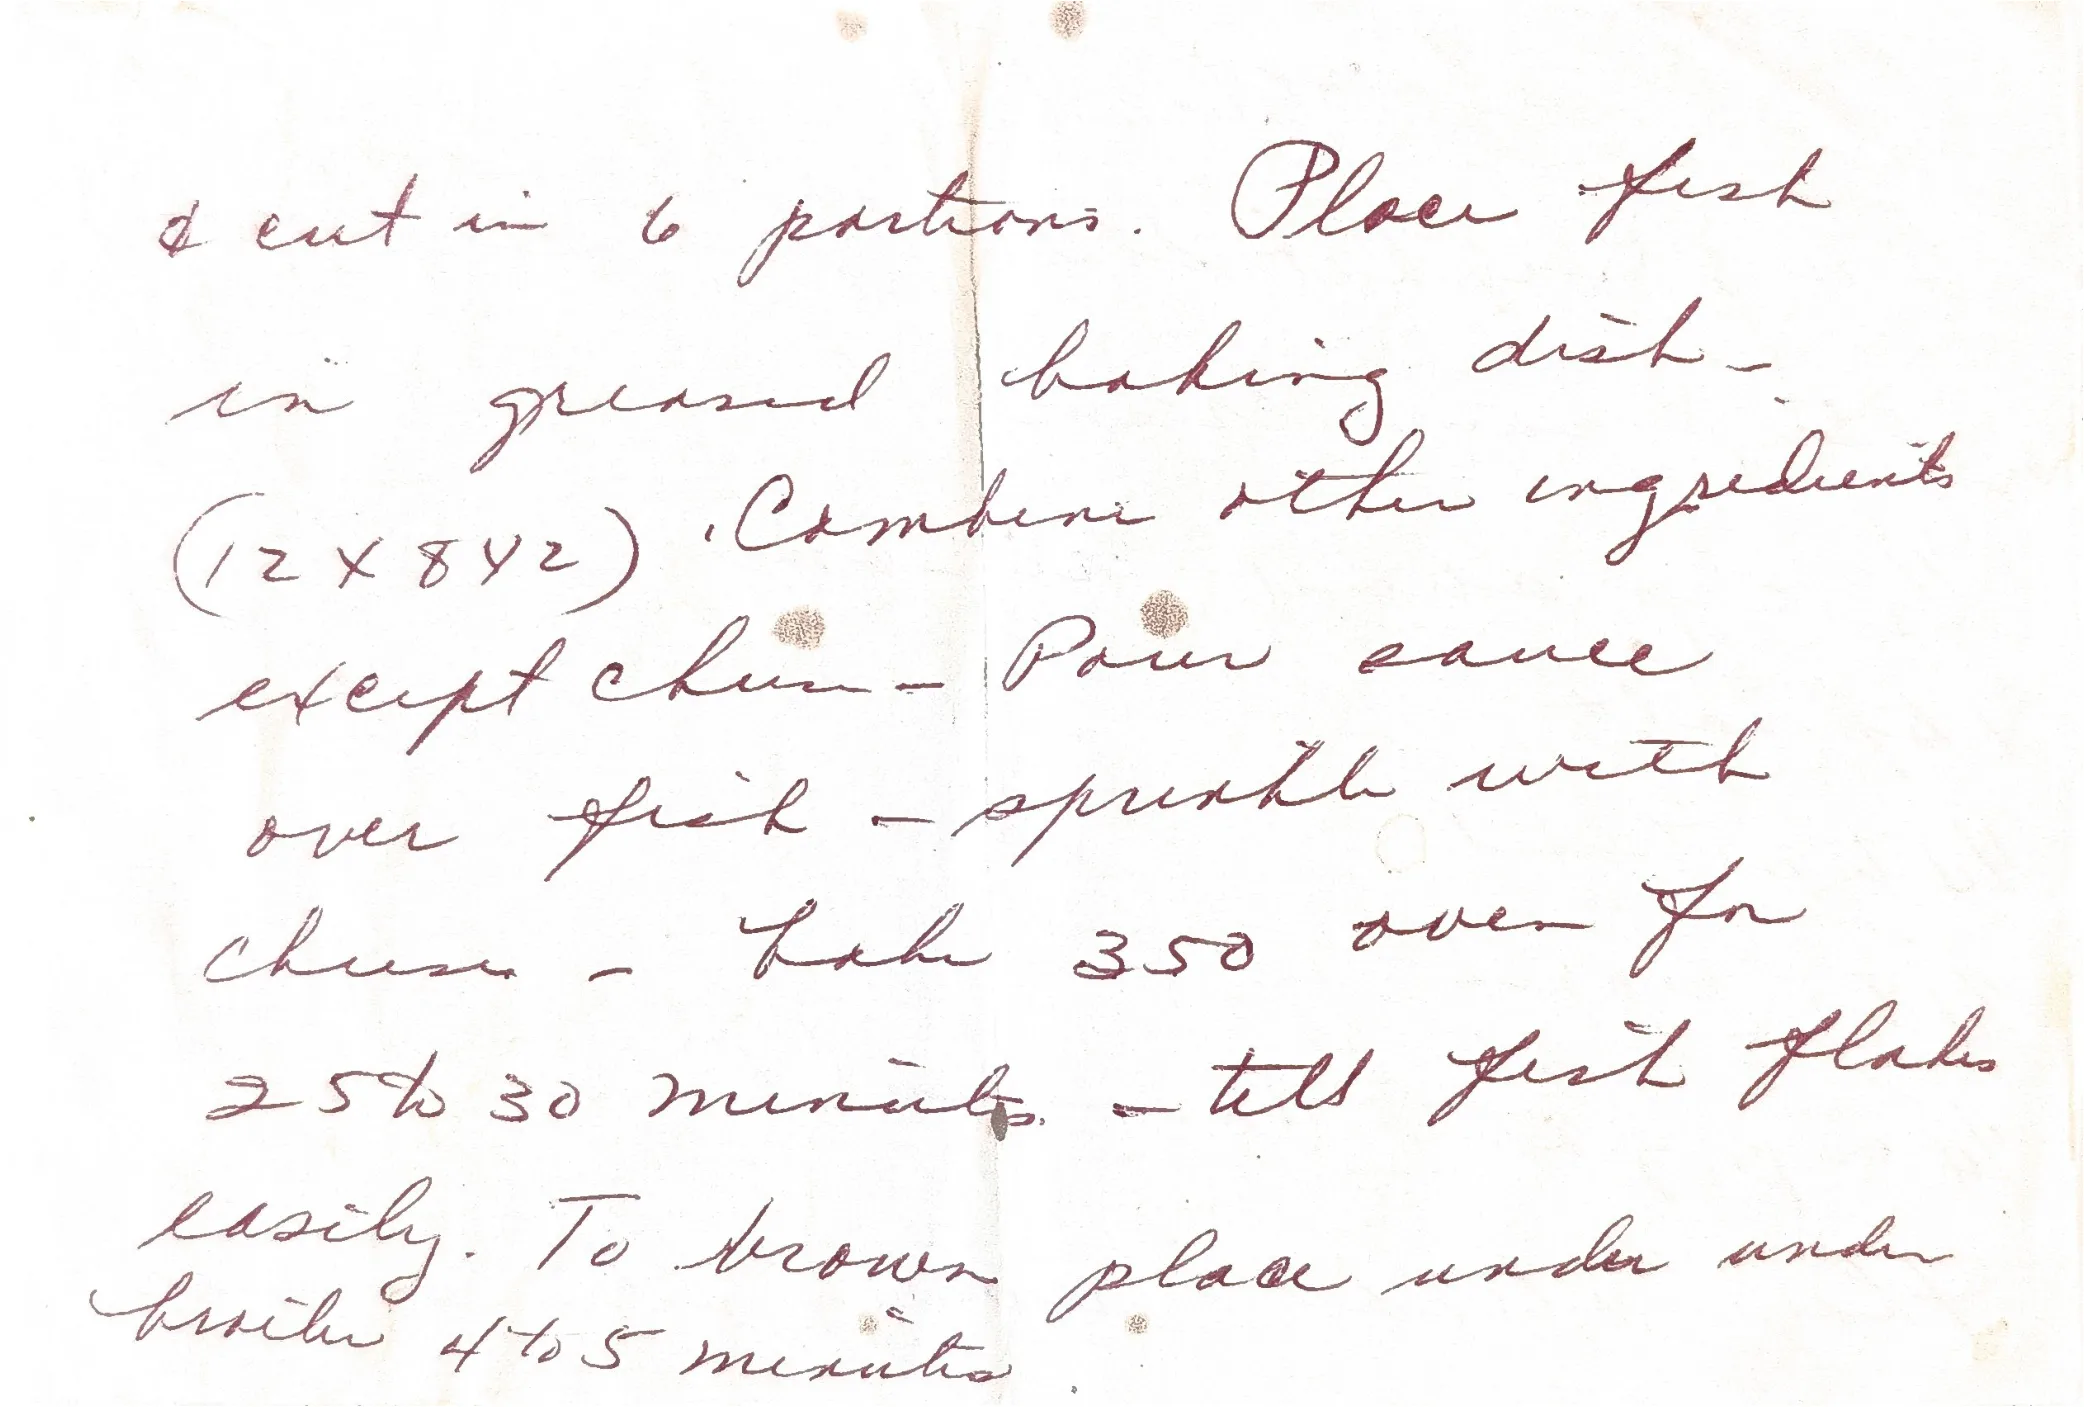 & cut in 6 portions. Place fish
in greased baking dish -
(12 x 8 x 2). Combine other ingredients
except cheese - Pour sauce
over fish - sprinkle with
cheese - bake 350 oven for
25 to 30 minutes. - till fish flakes
easily. To brown place under under
broiler 4 to 5 minutes.